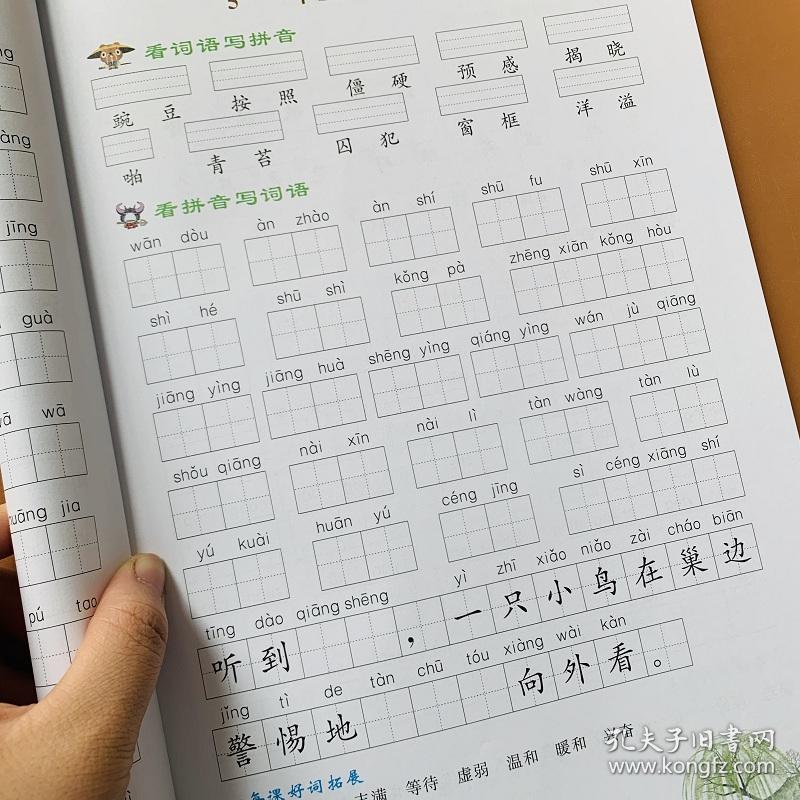 看词语写拼音
豌豆 按照 僵硬 预感 揭晓
啪 青苔 囚犯 窗框 洋溢
看拼音写词语
wān dòu àn zhào àn shí shū fu shū xīn
shì hé shū shì kǒng pà zhēng xiān kǒng hòu
jiāng yìng jiāng huà shēng yìng qiáng yìng wán jù qiāng
shǒu qiāng nài xīn nài lì tàn wàng tàn lù
yú kuài huān yú céng jīng sì céng xiāng shí
tīng dào qiāng shēng yì zhī xiǎo niǎo zài cháo biān
听到 ，一只小鸟在巢边
jǐng tì de tàn chū tóu xiàng wài kàn
警惕地 向外看。
课好词拓展
等待 虚弱 温和 暖和 兴奋
àng
jīng
guà
wā
jia
pú tao
孔夫子旧书网
www.kongfz.com